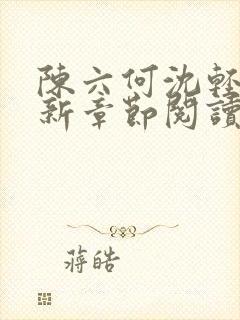 陳六何沈輕
新章節閱讀
蔣皓